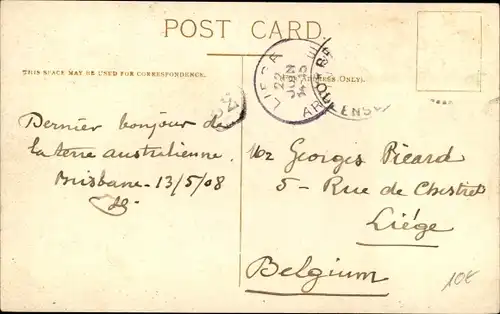 POST CARD.
THIS SPACE MAY BE USED FOR CORRESPONDENCE.
ADDRESS ONLY).
22
JUIN
Dernier bonjour de
la terre australienne.
Brisbane - 13/5/08
Mr Georges Picard
5 - Rue de Chestret
Liége
Belgium
10€